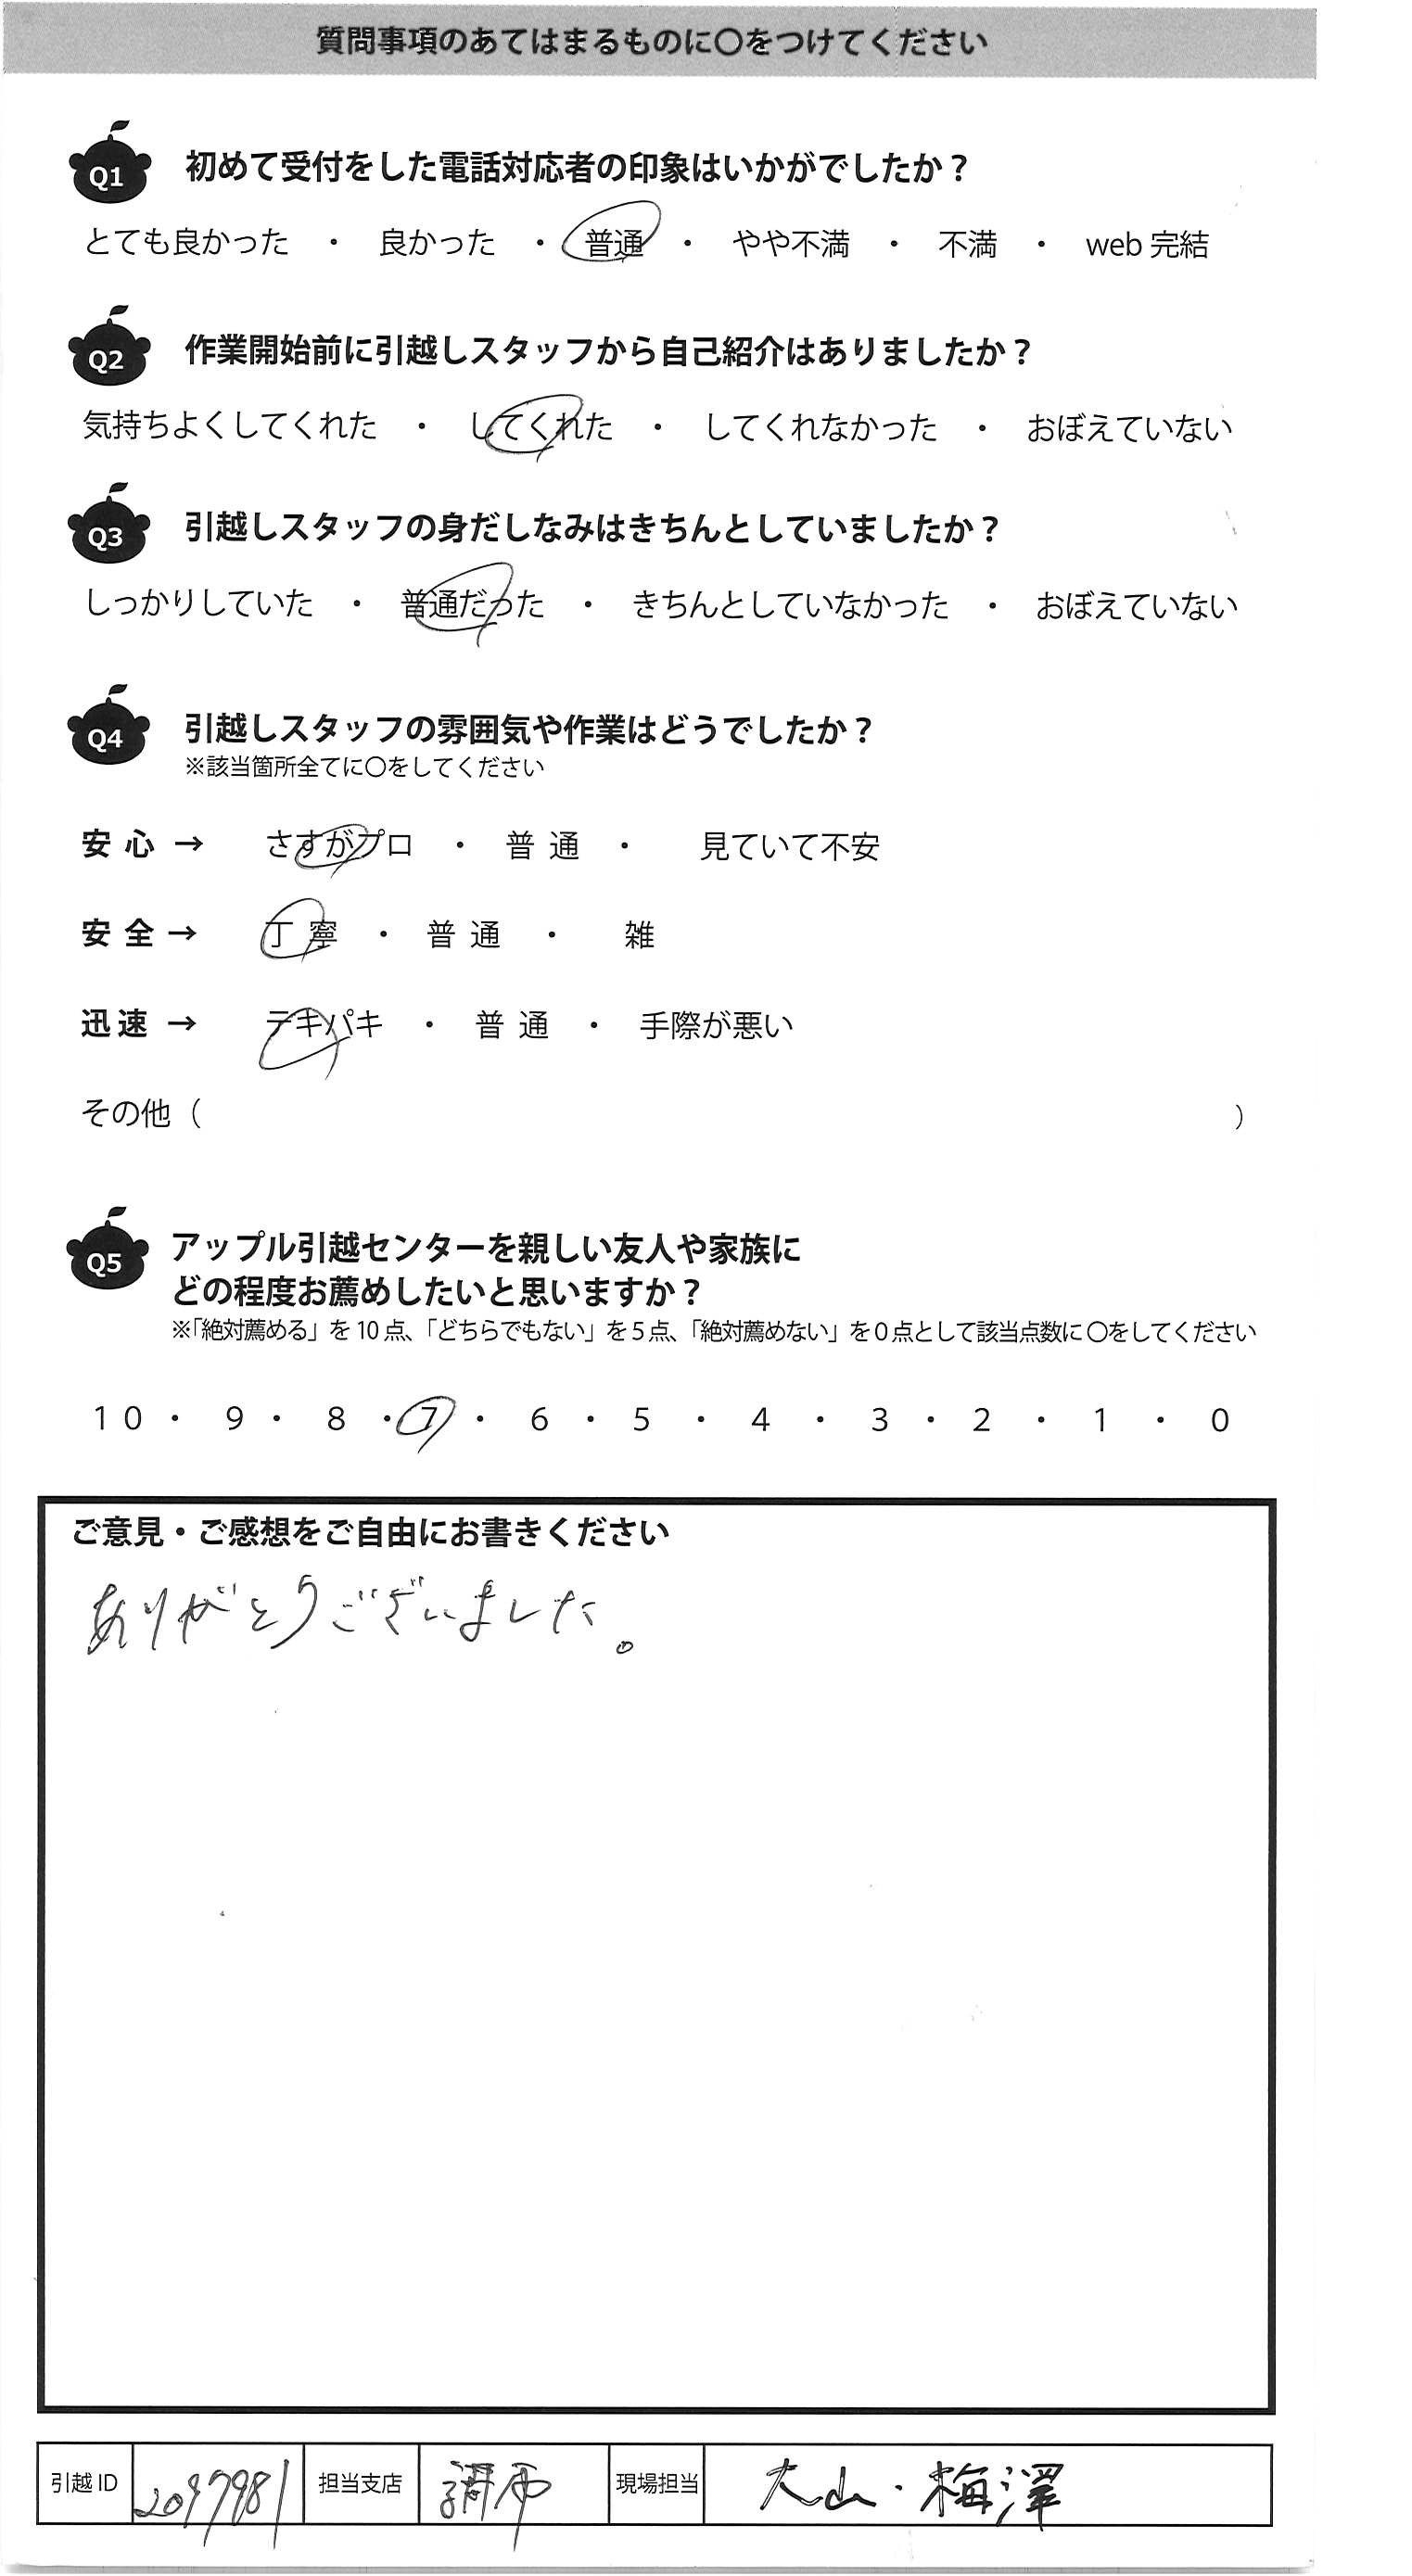 質問事項のあてはまるものに〇をつけてください
Q1 初めて受付をした電話対応者の印象はいかがでしたか？
とても良かった ・ 良かった ・ 普通 ・ やや不満 ・ 不満 ・ web 完結
Q2 作業開始前に引越しスタッフから自己紹介はありましたか？
気持ちよくしてくれた ・ してくれた ・ してくれなかった ・ おぼえていない
Q3 引越しスタッフの身だしなみはきちんとしていましたか？
しっかりしていた ・ 普通だった ・ きちんとしていなかった ・ おぼえていない
Q4 引越しスタッフの雰囲気や作業はどうでしたか？
※該当箇所全てに〇をしてください
安 心 → さすがプロ ・ 普 通 ・ 見ていて不安
安 全 → 丁 寧 ・ 普 通 ・ 雑
迅 速 → テキパキ ・ 普 通 ・ 手際が悪い
その他（ ）
Q5 アップル引越センターを親しい友人や家族に
どの程度お薦めしたいと思いますか？
※「絶対薦める」を 10 点、「どちらでもない」を 5 点、「絶対薦めない」を 0 点として該当点数に 〇をしてください
10 ・ 9 ・ 8 ・ 7 ・ 6 ・ 5 ・ 4 ・ 3 ・ 2 ・ 1 ・ 0
ご意見・ご感想をご自由にお書きください
ありがとうございました。
引越 ID 2097981 担当支店 調布 現場担当 大山・梅澤